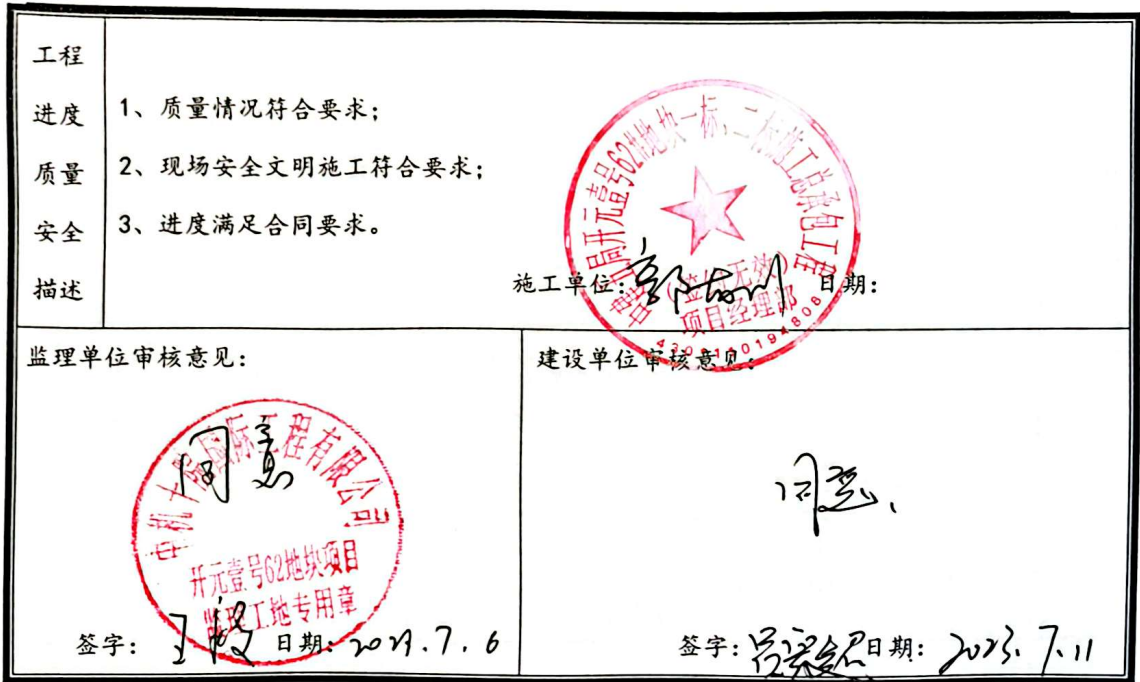 工程
进度
质量
安全
描述
1、质量情况符合要求;
2、现场安全文明施工符合要求;
3、进度满足合同要求。
开元壹号62#地块一标、二标施工总承包工程
项目经理部
施工单位:
日期:
监理单位审核意见:
同意
国际工程有限公司
开元壹号62地块项目
监理工地专用章
签字:
日期: 2023.7.6
建设单位审核意见:
同意、
签字:
日期: 2023.7.11